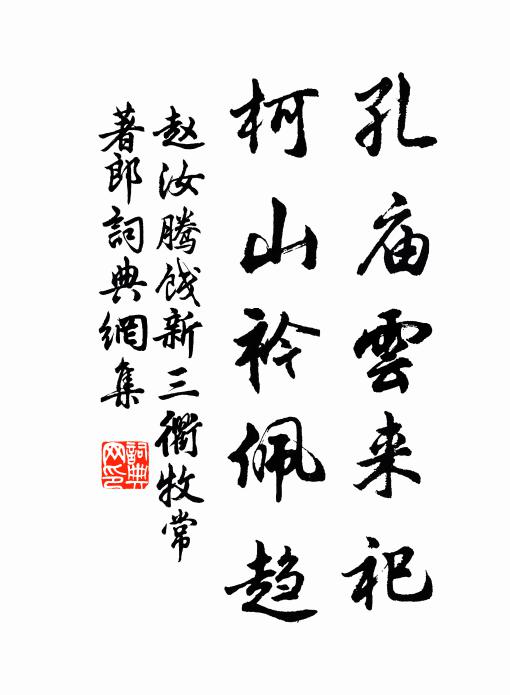 孔庙雲来祀
柯山衿佩趋
赵汝腾饯新三衢牧常
著郎詞典網集
詞典网印